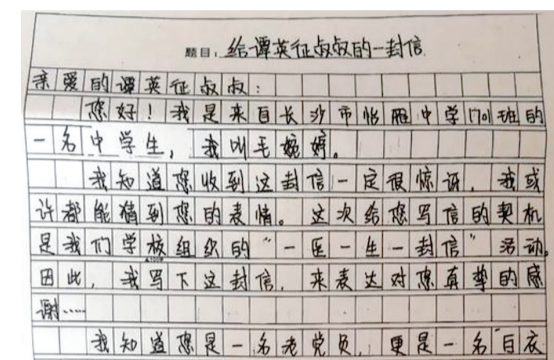 题目：给谭英征叔叔的一封信
亲爱的谭英征叔叔：
您好！我是来自长沙市怡雅中学1701班的
一名中学生，我叫毛婉婷。
我知道您收到这封信一定很惊讶，我或
许都能猜到您的表情。这次给您写信的契机
是我们学校组织的“一医一生一封信”活动。
因此，我写下这封信，来表达对您真挚的感
谢……
我知道您是一名老党员，更是一名“白衣